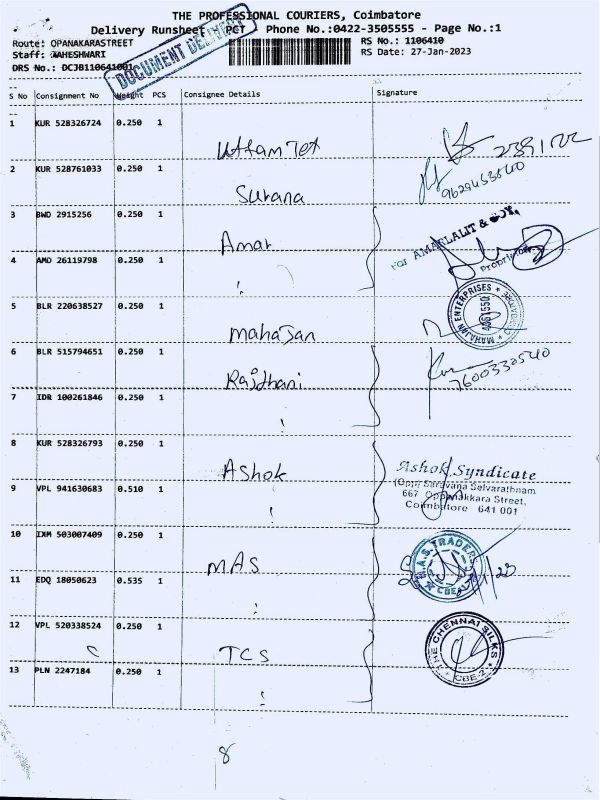 THE PROFESSIONAL COURIERS, Coimbatore
Delivery Runsheet PCT Phone No.:0422-3505555 - Page No.:1
Route: OPANAKARASTREET
RS No.: 1106410
Staff: MAHESHWARI
RS Date: 27-Jan-2023
DRS No.: DCJB110641001
DOCUMENT DELIVERY
S No Consignment No Weight PCS Consignee Details Signature
1 KUR 528326724 0.250 1 Uttam Tex
2 KUR 528761033 0.250 1 Surana 9629453540
3 BWD 2915256 0.250 1 Amar For AMARLALIT & COY,
Proprietor
4 AMD 26119798 0.250 1
5 BLR 220638527 0.250 1 Mahajan MAHAJAN ENTERPRISES
6 BLR 515794651 0.250 1 Rajdhani 7600330540
7 IDR 100261846 0.250 1
8 KUR 528326793 0.250 1 Ashok Ashok Syndicate
(Opp) Saravana Selvarathnam
667 Oppanakkara Street,
Coimbatore 641 001
9 VPL 941630683 0.510 1
10 IXM 503007409 0.250 1 MAS M.A.S. TRADERS
11 EDQ 18050623 0.535 1
12 VPL 520338524 0.250 1 TCS THE CHENNAI SILKS CBE-2
13 PLN 2247184 0.250 1
8